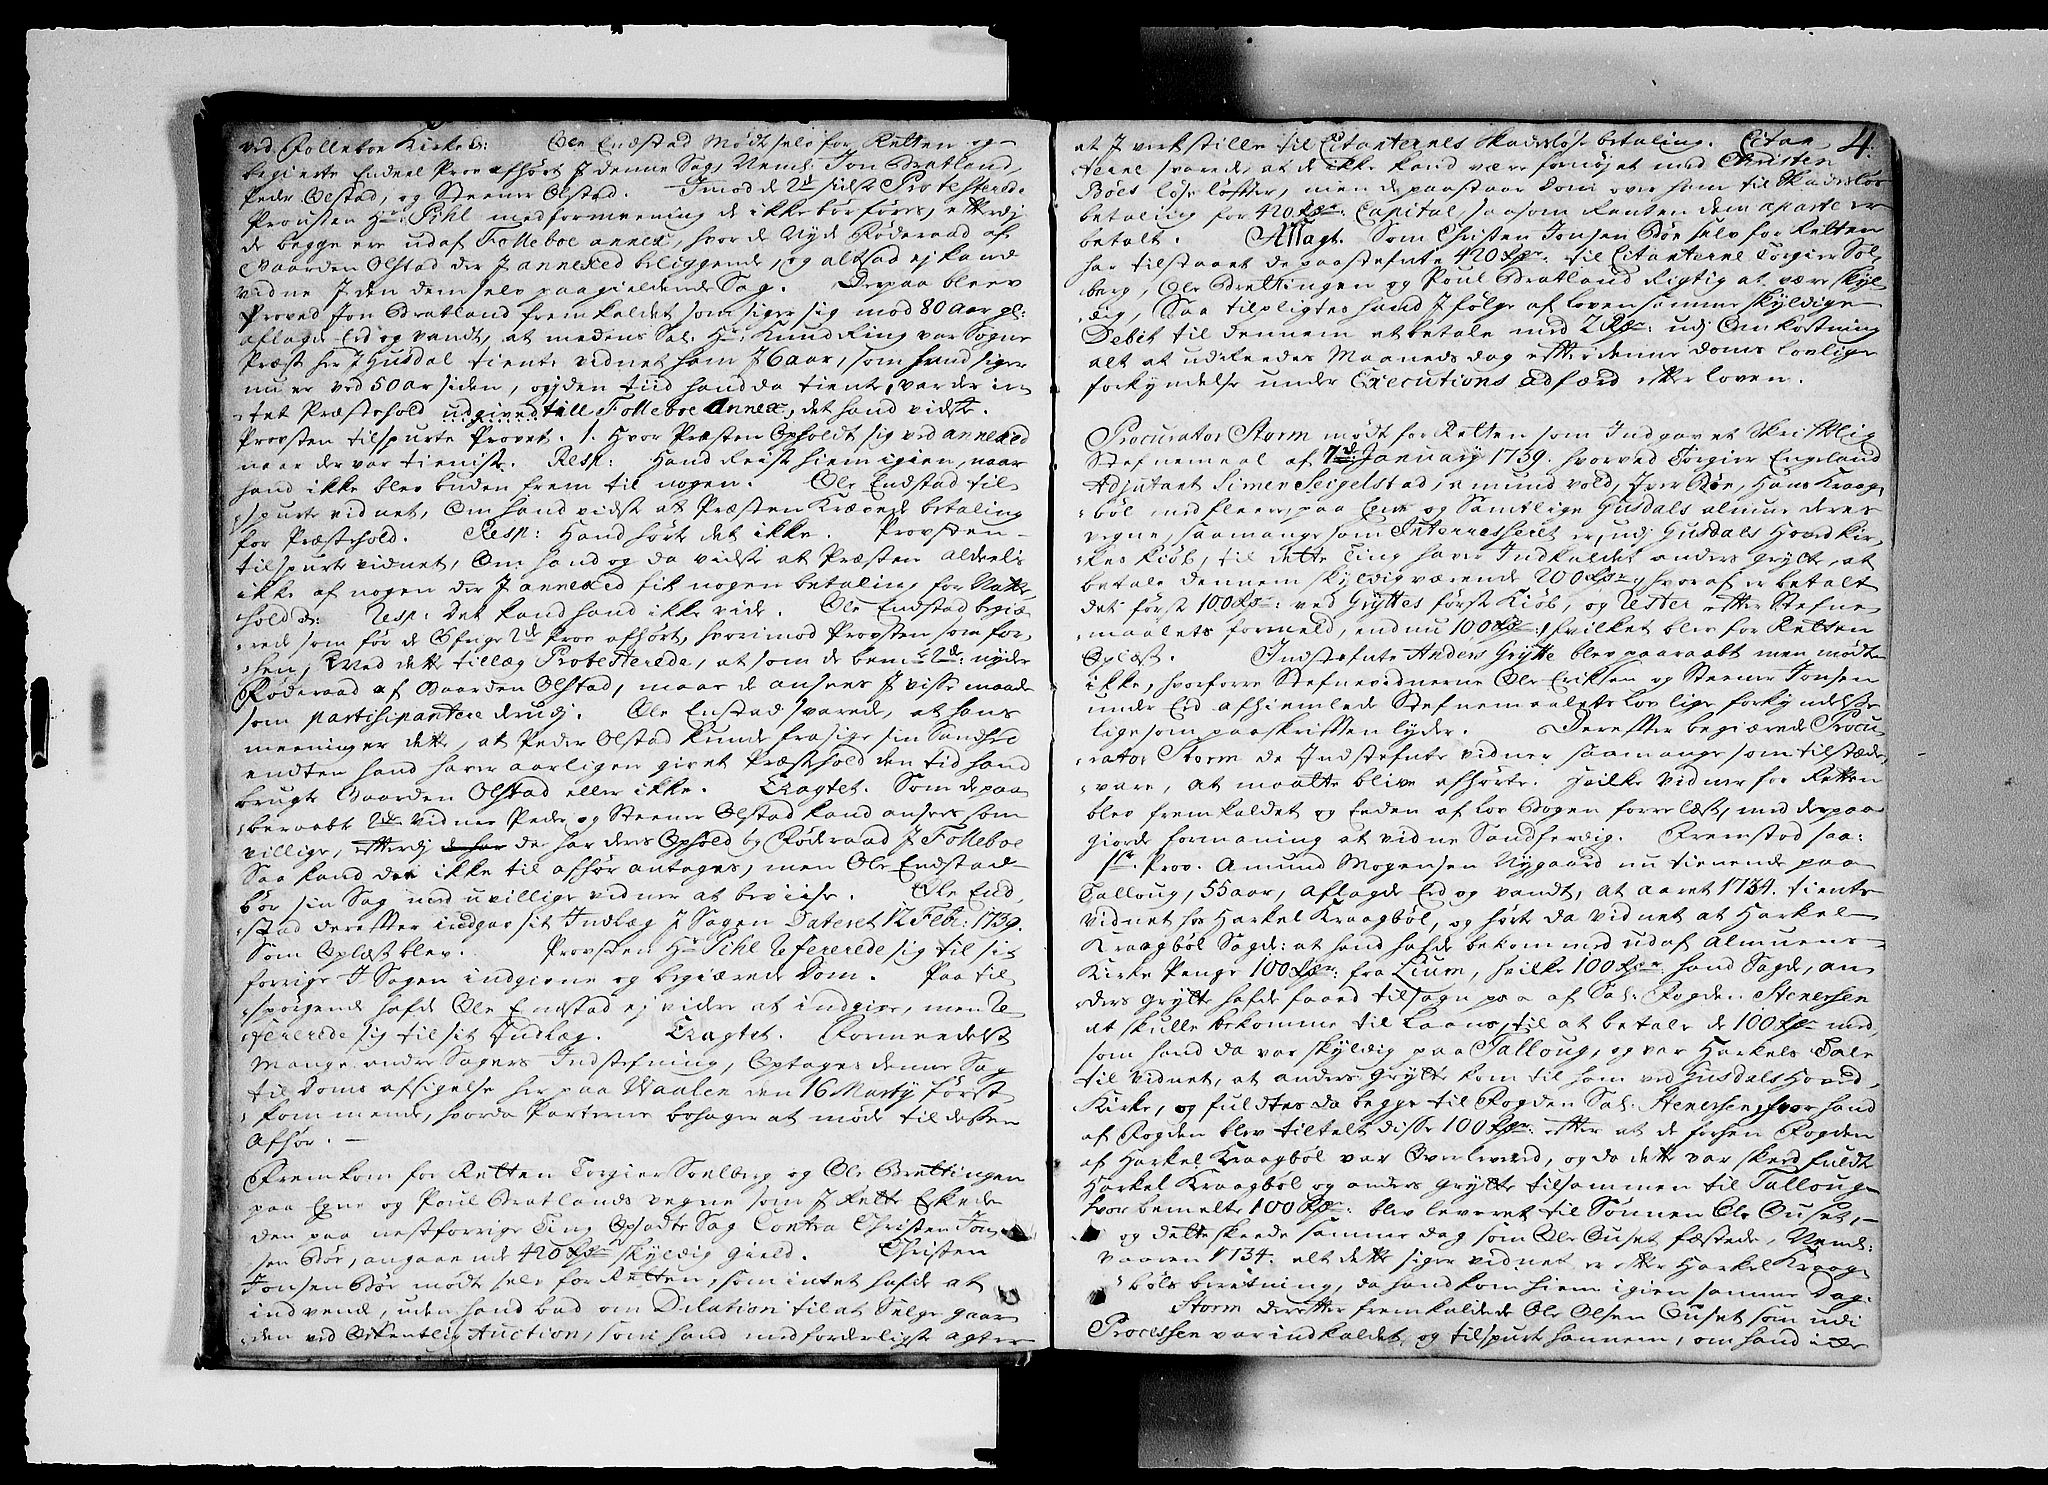 ved Folleboe Kirke d: Ole Endstad Mødt selv for Retten og
begierte Endeel Prov afhørt J denne Sag, Neml: Jon Bratland,
Peder Olstad, og Steener Olstad. Jmod de 2de sidste Protesterede
Prousten Hr: Pihl med formeening de ikke bør føres, efterdj
de begge ere udaf Folleboe annex, hvor de Nyde Føderaad af
Gaarden Olstad der J annexed beliggende, og altsaa ej kand
vidne J den dem selv paagieldende Sag. Derpaa blev
Proved Jon Bratland fremkaldet som siger sig mod 80 Aar gl:
aflagde Eed og vandt, at medens Sal: Hr: Knud Ring var Sogne
Præst her J Gusdal tiente vidnet ham J 6 aar, som hand siger
nu er ved 50 ar siden, og den tiid hand da tiente, var der in-
tet Præstehold udgived till Folleboe Annex, det hand vidste.
Provsten tilspurte Provet. 1. Hvor Præsten Opholdt sig ved annexed
naar der var tieniste. Resp: Hand Reiste hiem igien, naar
hand ikke blev buden frem til nogen. Ole Endstad til
spurte vidnet, Om hand vidste at Præsten Krævede betaling
for Præstehold. Resp: Hand hørte det ikke. Provsten
tilspurte vidnet, Om hand og da vidste at Præsten aldeelis
ikke af nogen der J annexed fik nogen betaling for Natte-
hold d: Resp: Det kand hand ikke vide. Ole Endstad begiæ-
rede som før de Øfrige 2de Prov afhørt, hvorimod Provsten som for-
hen, Med dette tillæg Protesterede, at som de bemte 2de: nyder
Føderaad af Gaarden Olstad, maae de ansees J visse maade
som partisipantere derudj. Ole Enstad svarede, at hans
meening er dette, at Peder Olstad kunde frasige sin Sandhed
endten hand haver aarligen givet Præstehold den tid hand
brugte Gaarden Olstad eller ikke. Eragtet. Som de paa
beraabte 2de vidner Peder og Steener Olstad kand ansees som
villige, efterdj de har ders Ophold og Føderaad J Folleboe
Saa kand der ikke til afhør antages, men Ole Endstad
bør sin Sag med uvillige vidner at beviise. Ole End-
stad derefter indgav sit Indlæg J Sagen Dateret 12 Feb: 1739.
Som Oplæst blev. Provsten Hr Pihl Refererede sig til sit
forrige J Sagen indgivne og begiærede Dom. Paa til
spørgende hafde Ole Endstad ej videre at indgive, men Re-
fererede sig til sit Indlæg. Eragtet. Formeedelst
Mange andre Sagers Indstefning, Optages denne Sag
til Doms afsigelse her paa Waalen den 16 Marty først
kommende, hvorda Parterne behager at møde til dessen
Afhør. —
Fremkom for Retten Torgier Soelberg og Ole Brettingen
paa Egne og Poul Bratlands vegne som J Rette Eskede
den paa nestforrige Ting Opsadte Sag Contra Christen Jon-
sen Bøe, angaaende 420 Rdr skyldig gield. Christen
Jonsen Bøe mødt selv for Retten, som intet hafde at
indvende, uden hand bad om Dilation til at Selge gaar-
den ved Offentlig Auction, som hand med forderligst agter
4.
at J verkstille til Citanternes skadesløse betaling. Citan-
terne svarede, at de ikke kand være fornøjet med Christen
Bøes løse løfter, men de paastaar Dom over ham til Skadesløs
betaling for 420 Rdr: Capital, saasom Renten dem aparte er
betalt. Afsagt. Som Christen Jonsen Bøe selv for Retten
har tilstaaet de paastefnte 420 Rdr: til Citanterne Torgier Sol-
berg, Ole Brettingen og Poul Bratland Rigtig at være skyl-
dig, Saa tilpligtes hand J følge af loven samme skyldige
Debit til dennem at betale med 2 Rdr: udj Omkostning
alt at udreedes Maaneds dag efter denne Doms lovlige
forkyndelse under Executions adfærd efter loven.
Procurator Storm mødt for Retten som Indgav et Skriftlig
Stefnemaal af 7de: January 1739. hvorved Torgier Engeland
Adjutant Simen Seigelstad, Amund vold, Iver Bøe, Hans Kraag-
bøl med fleere, paa Egne og Samtlige Gusdals almues deres
vegne, saamange som Interresseret er, udj Gusdals Hoved Kir-
kes Kiøb, til dette Ting haver Indkaldet anders Grytte, at
betale dennem skyldig værende 200 Rdr, hvoraf er betalt
det første 100 Rdr: ved Gryttes første Kiøb, og Rester efter Stefne-
maalets formeld, endnu 100 Rdr: hvilket blev for Retten
Oplæst. Indstefnte Anders Grytte blev paaraabt men mødte
ikke, hvorforre Stefnevidnerne Ole Eriksen og Steener Jonsen
under Eed afhiemlede Stefnemaalets lovlige forkyndelse
lige som paaskriften lyder. Derefter begiærede Procu-
rator Storm de Indstefnte vidner saamange som tilstæde
vare, at maatte blive afhørte. Hvilke vidner for Retten
blev fremkaldet og Eeden af lov Bogen forrelæst, med derpaa
giorde formaning at vidne Sandferdig. Fremstod saa:
1te Prov. Amund Mogensen Nygaard nu tienende paa
Talloug, 55 aar, aflagde Eed og vandt, at aaret 1734. tiente
vidnet hos Harkel Kraagbøl, og hørte da vidnet at Harkel
Kraagbøl Sagde: at hand hafde bekommed udaf Almuens
Kirke Penge 100 Rdr: fra Lium, hvilke 100 Rdr: hand Sagde, an-
ders Grytte hafde faaed tilsagn paa af Sal: Fogden Stenersen
at skulle bekomme til Laans, til at betale de 100 Rdr med,
som hand da var skyldig paa Talloug, og var Harkels Tale
til vidnet, at anders Grytte kom til ham ved Gusdals Hoved-
Kirke, og fuldtes da begge til Fogden Sal: Stenersen, hvor hand
af Fogden blev tiltalt disse 100 Rdr: efter at de forhen Fogden
af Harkel Kraagbøl var Overleverd, og da dette var skeed fuldte
Harkel Kraagbøl og anders Grytte tilsammen til Talloug
hvor bemelte 100 Rdr: blev leveret til Sønnen Ole Ouset,
og dette skeede samme dag som Ole Ouset fæstede, Neml:
vaaren 1734. alt dette siger vidnet er efter Harkel Kraag-
bøls beretning, da hand kom hiem igien samme Dag.
Storm derefter fremkaldede Ole Olsen Ouset som udi
Processen var indkaldet, og tilspurte hannem, om hand icke